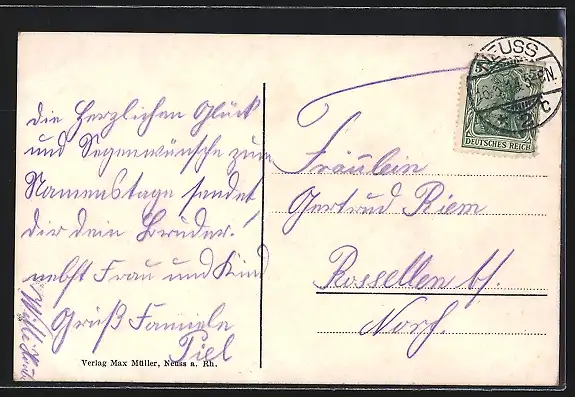 die Herzlichen Glück
und Segenwünsche zum
Namenstage sendet
dir dein Bruder.
nebst Frau und Kind
Gruß Familie
Tiel
Verlag Max Müller, Neuss a. Rh.
NEUSS
2c
DEUTSCHES REICH
Fräulein
Gertrud Riem
Rosellen bf.
Norf.